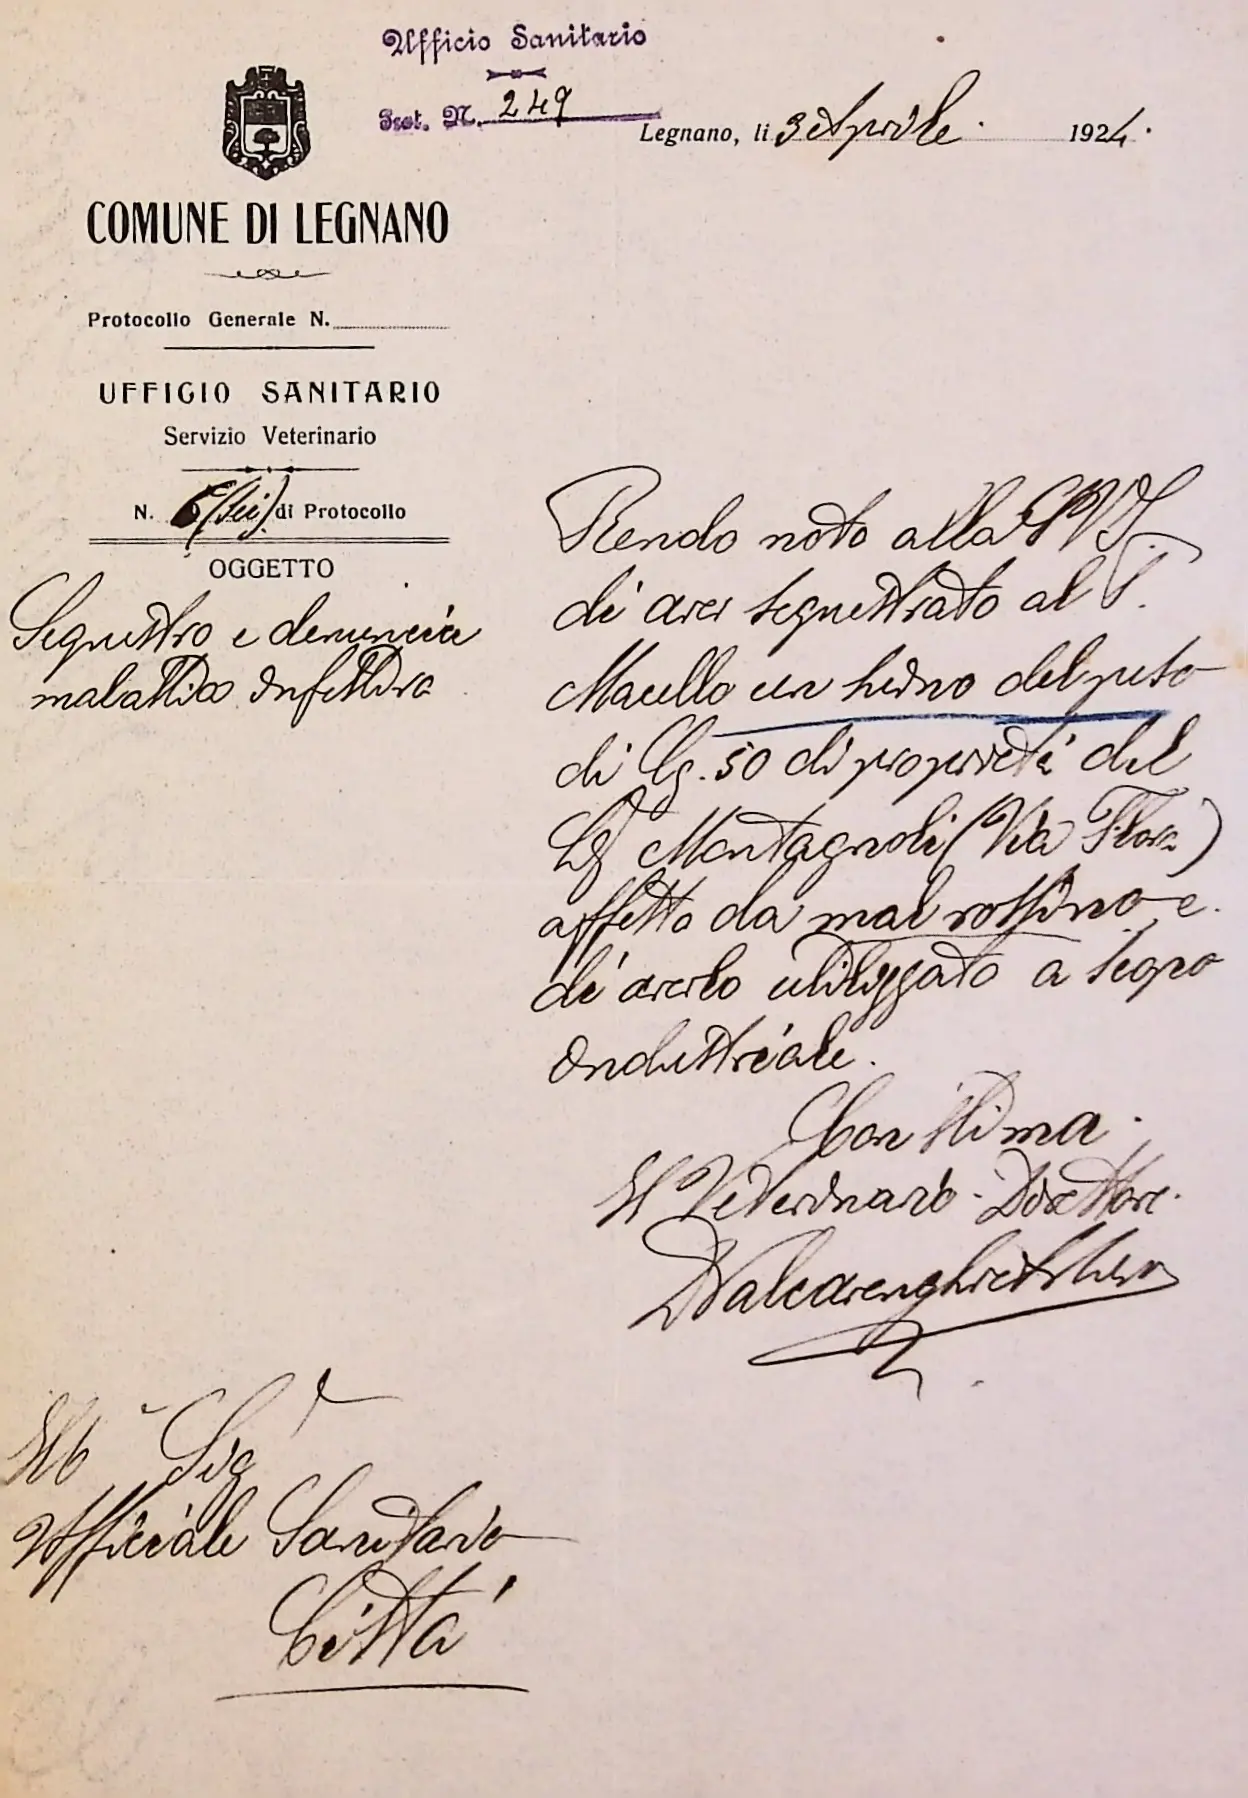 Ufficio Sanitario
Prot. N. 249
Legnano, li 3 Aprile 1924.
COMUNE DI LEGNANO
Protocollo Generale N.
UFFICIO SANITARIO
Servizio Veterinario
N. 6 (sei) di Protocollo
OGGETTO
Sequestro e denuncia
malattia infettiva
Rendo noto alla S.V.I.
di aver sequestrato al P.
Macello un suino del peso
di Kg. 50 di proprietà del
Sig Montagnoli (Via Flora)
affetto da mal rossino e
di averlo utilizzato a scopo
industriale.
Con stima.
Il Veterinario Direttore.
Ill Sig
Ufficiale Sanitario
Città